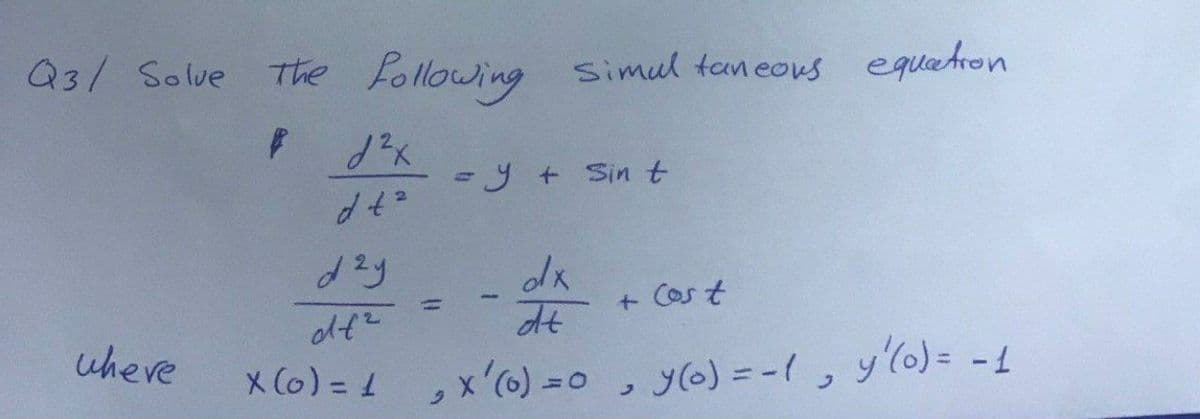 Q3/ Solve The following simultaneous equation
d²x/dt² = y + Sin t
d²y/dt² = - dx/dt + Cos t
where x(0) = 1 , x'(0) = 0 , y(0) = -1 , y'(0) = -1